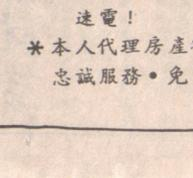 速電!
*本人代理房產
忠誠服務•免